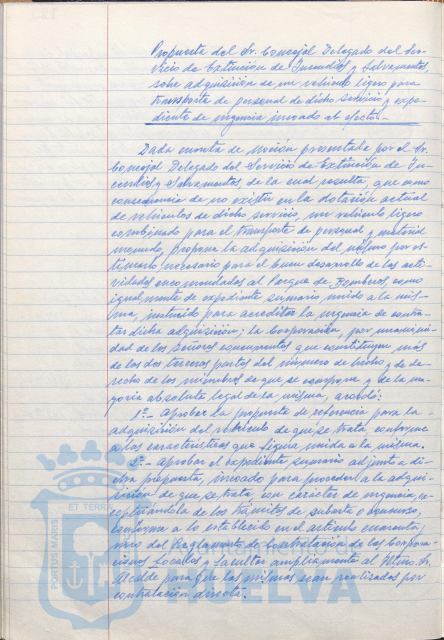 Propuesta del Sr. Concejal Delegado del Ser-
vicio de Extinción de Incendios y Salvamentos,
sobre adquisición de un vehículo ligero para
transporte de personal de dicho servicio y expe-
diente de urgencia incoado al efecto.-
Dada cuenta de moción presentada por el Sr.
Concejal Delegado del Servicio de Extinción de In-
cendios y Salvamentos, de la cual resulta, que como
consecuencia de no existir en la dotación actual
de vehículos de dicho servicio, un vehículo ligero
combinado para el transporte de personal y material
menudo, propone la adquisición del mismo por es-
timarlo necesario para el buen desarrollo de las acti-
vidades encomendadas al Parque de Bomberos, como
igualmente de expediente sumario unido a la mis-
ma, instruido para acreditar la urgencia de contra-
tar dicha adquisición; la Corporación, por unanimi-
dad de los señores concurrentes que constituyen más
de las dos terceras partes del número de hecho y de de-
recho de los miembros de que se compone y de la ma-
yoria absoluta legal de la misma, acordó:
1º.- Aprobar la propuesta de referencia para la
adquisición del vehículo de que se trata, conforme
a las características que figura unida a la misma.
2º.- Aprobar el expediente sumario adjunto a di-
cha propuesta, incoado para proceder a la adqui-
sición de que se trata, con carácter de urgencia, ex-
ceptuándola de los trámites de subasta o concurso,
conforme a lo establecido en el artículo cuarenta y
uno del Reglamento de Contratación de las Corpora-
ciones Locales y facultar ampliamente al Iltmo. Sr.
Alcalde para que las mismas sean realizadas por
contratación directa.-
PORTUS MARIS ET TERRAE
Ayuntamiento de
HUELVA